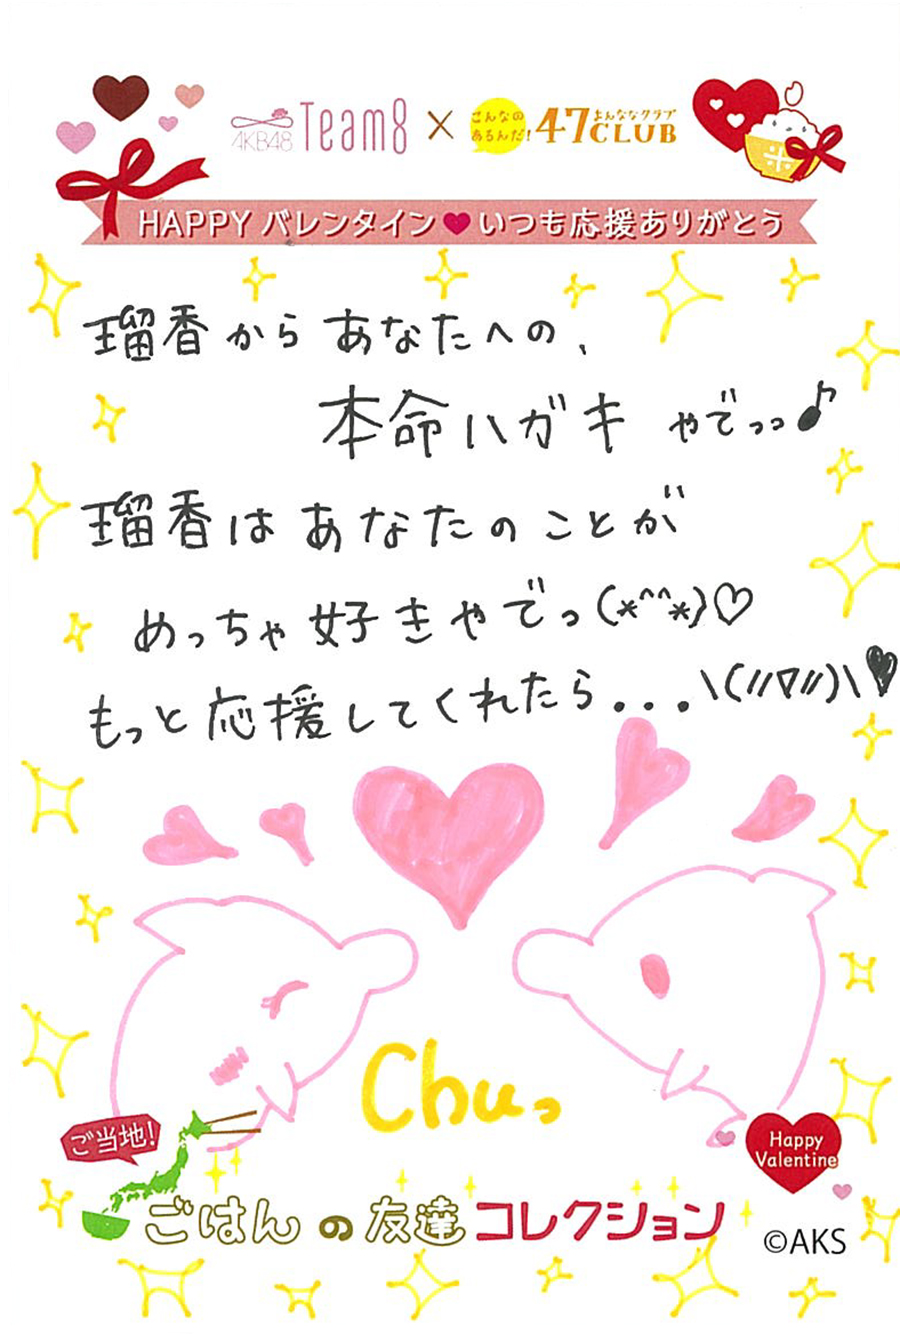 AKB48 Team8 × こんなのあるんだ! 47CLUB よんななクラブ
HAPPY バレンタイン♥いつも応援ありがとう
瑠香から あなたへの、
本命ハガキ やでっっ♪
瑠香は あなたの ことが
めっちゃ 好きやでっ(*^^*)♡
もっと 応援してくれたら...\(//▽//)\♥
Chuっ
ご当地!
Happy
Valentine
ごはんの友達コレクション
©AKS